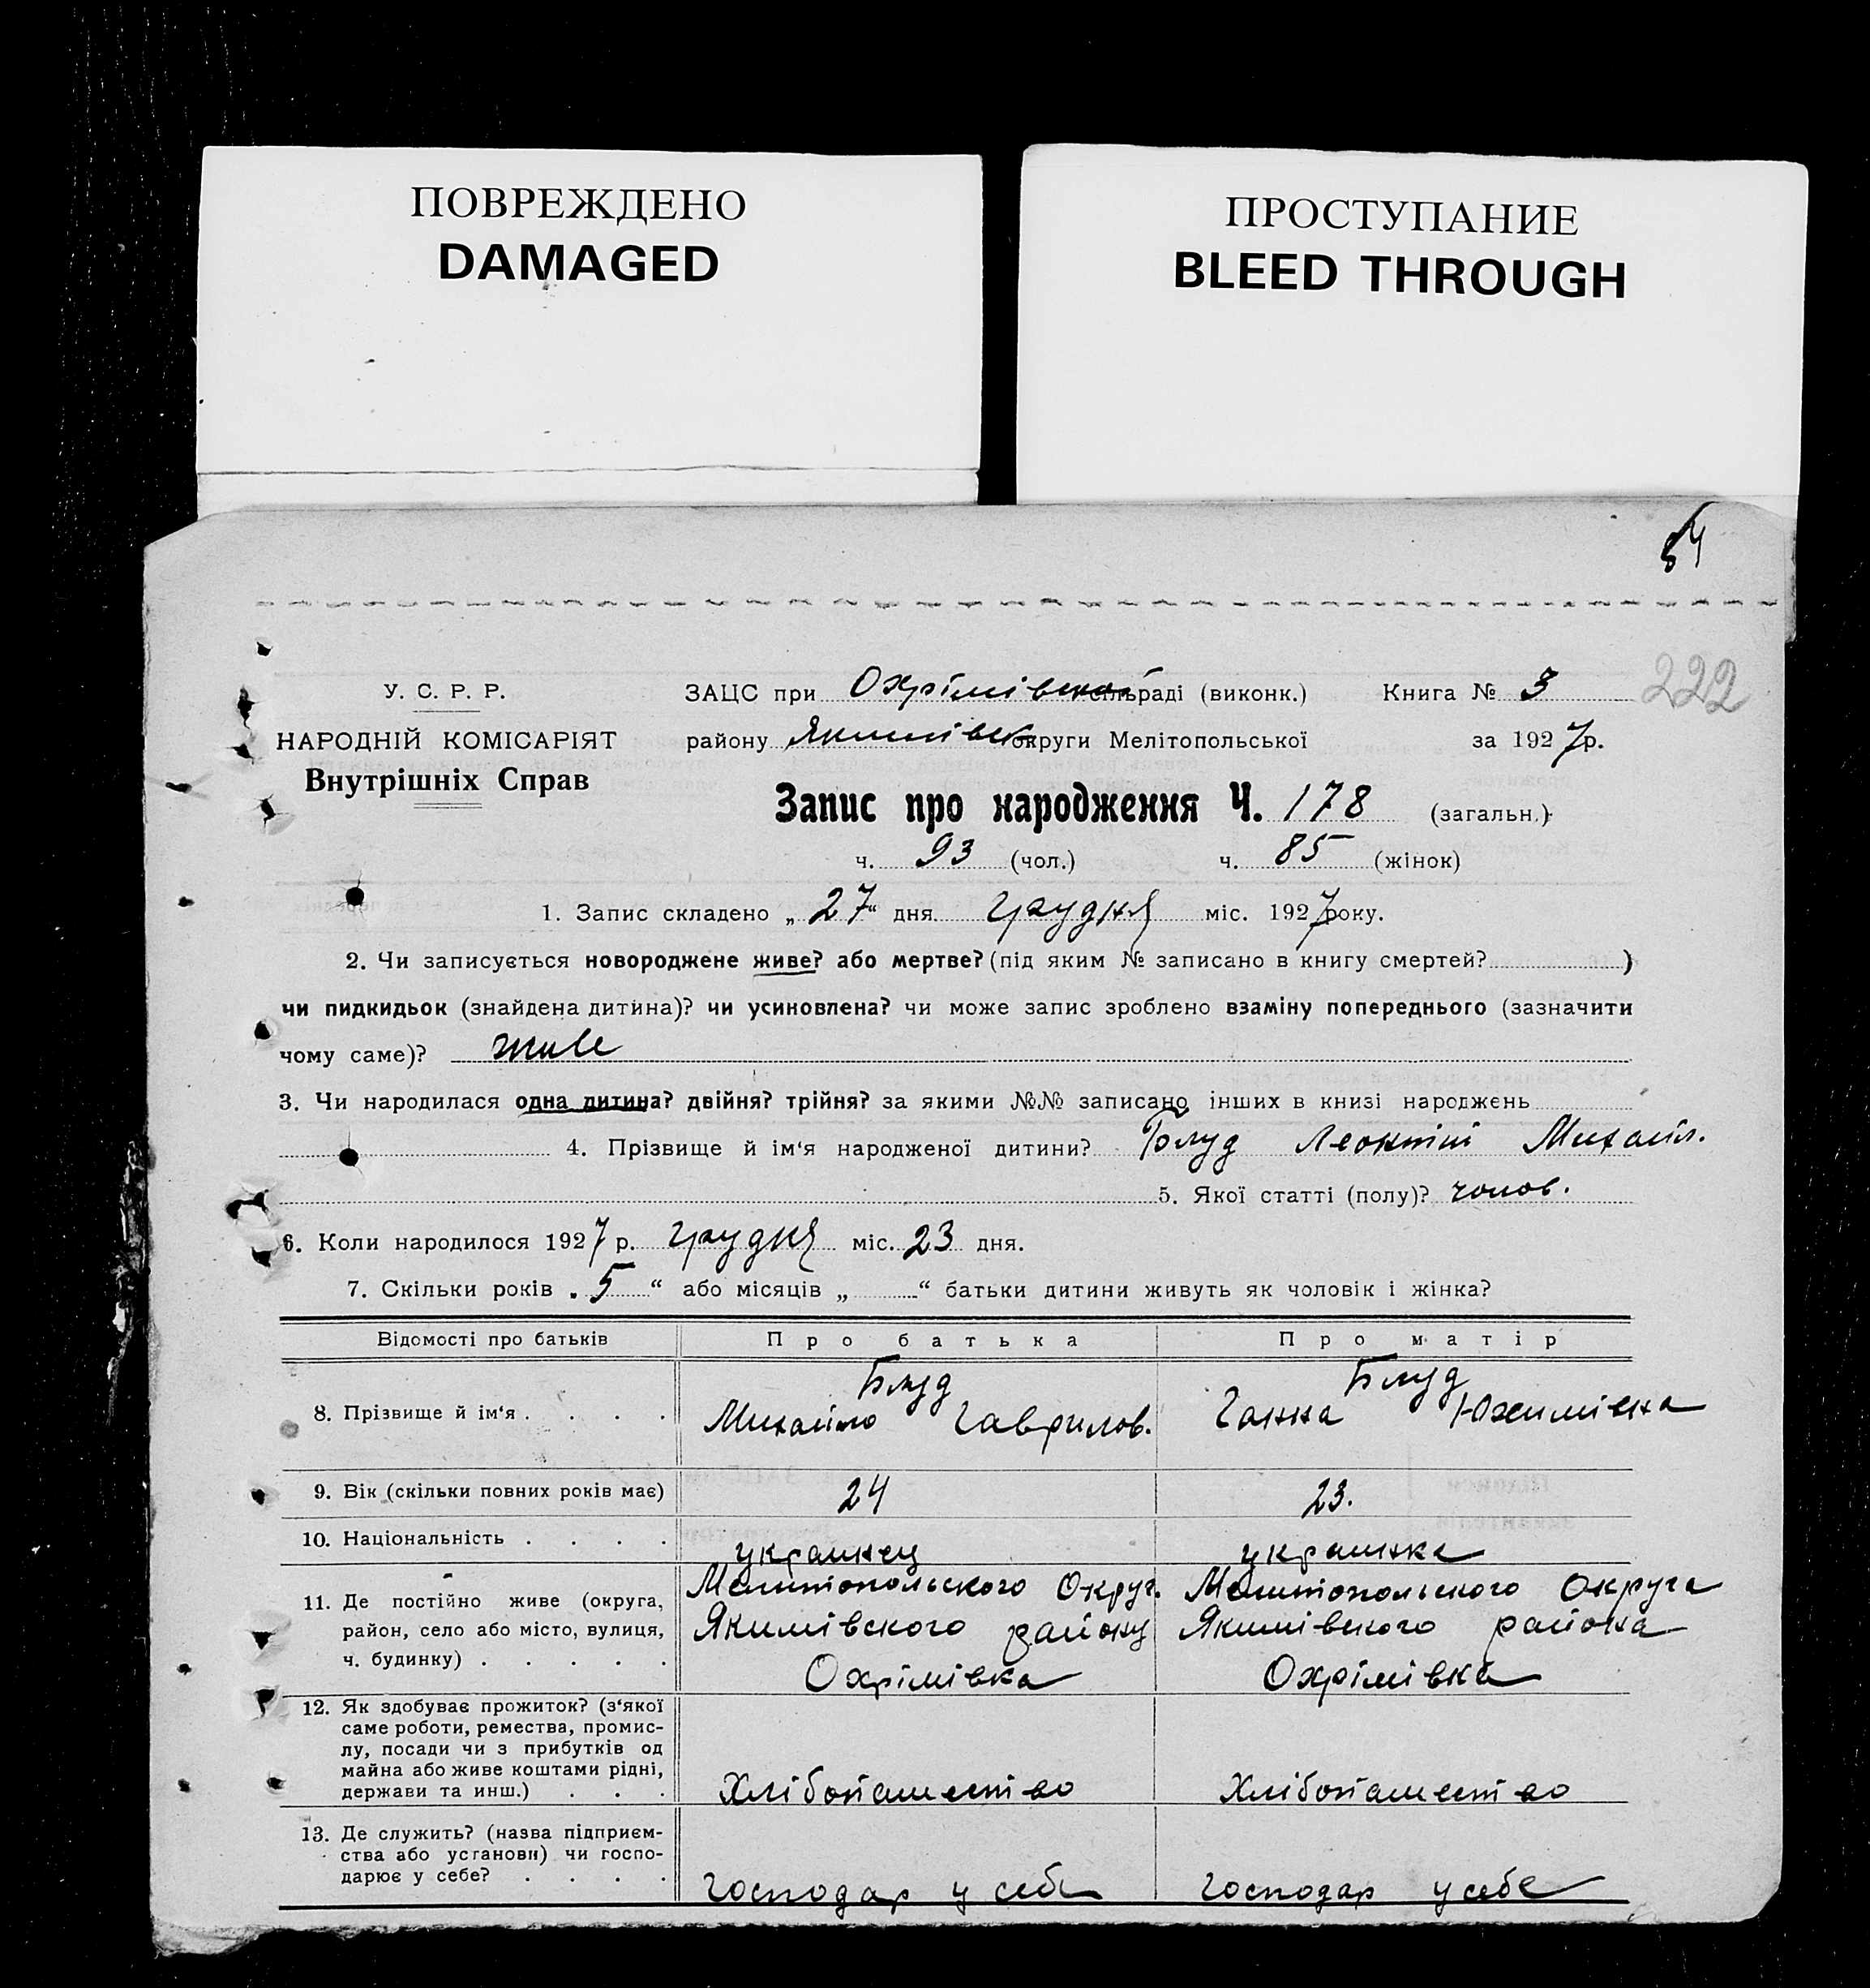 ПОВРЕЖДЕНО
DAMAGED
ПРОСТУПАНИЕ
BLEED THROUGH
84
222
У. С. Р. Р.
НАРОДНІЙ КОМІСАРІЯТ
Внутрішніх Справ
ЗАЦС при Охрімівской сільраді (виконк.) Книга № 3
району Якимівск округи Мелітопольської за 1927 р.
Запис про народження Ч. 178 (загальн.)
ч. 93 (чол.) ч. 85 (жінок)
1. Запис складено „27“ дня Грудня міс. 1927 року.
2. Чи записується новороджене живе? або мертве? (під яким № записано в книгу смертей? )
чи пидкидьок (знайдена дитина)? чи усиновлена? чи може запис зроблено взаміну попереднього (зазначити
чому саме)? живе
3. Чи народилася одна дитина? двійня? трійня? за якими №№ записано інших в книзі народжень
4. Прізвище й ім'я народженої дитини? Блуд Леонтій Михайл.
5. Якої статті (полу)? чолов.
6. Коли народилося 1927 р. Грудня міс. 23 дня.
7. Скільки років „5“ або місяців „ “ батьки дитини живуть як чоловік і жінка?
Відомості про батьків Про батька Про матір
8. Прізвище й ім'я . . . . Блуд Михайло Гаврилов. Блуд Ганна Юхимівна
9. Вік (скільки повних років має) 24 23.
10. Національність . . . . українец українка
11. Де постійно живе (округа, Мелитопольского Округ. Мелитопольского Округа
район, село або місто, вулиця, Якимівского району Якимівского района
ч. будинку) . . . . . Охрімівка Охрімівка
12. Як здобуває прожиток? (з'якої
саме роботи, ремества, промис-
лу, посади чи з прибутків од
майна або живе коштами рідні,
держави та инш.) . . . Хлібопашество Хлібопашество
13. Де служить? (назва підприєм-
ства або установи) чи госпо-
дарює у себе? . . . . Господар у себе Господар у себе